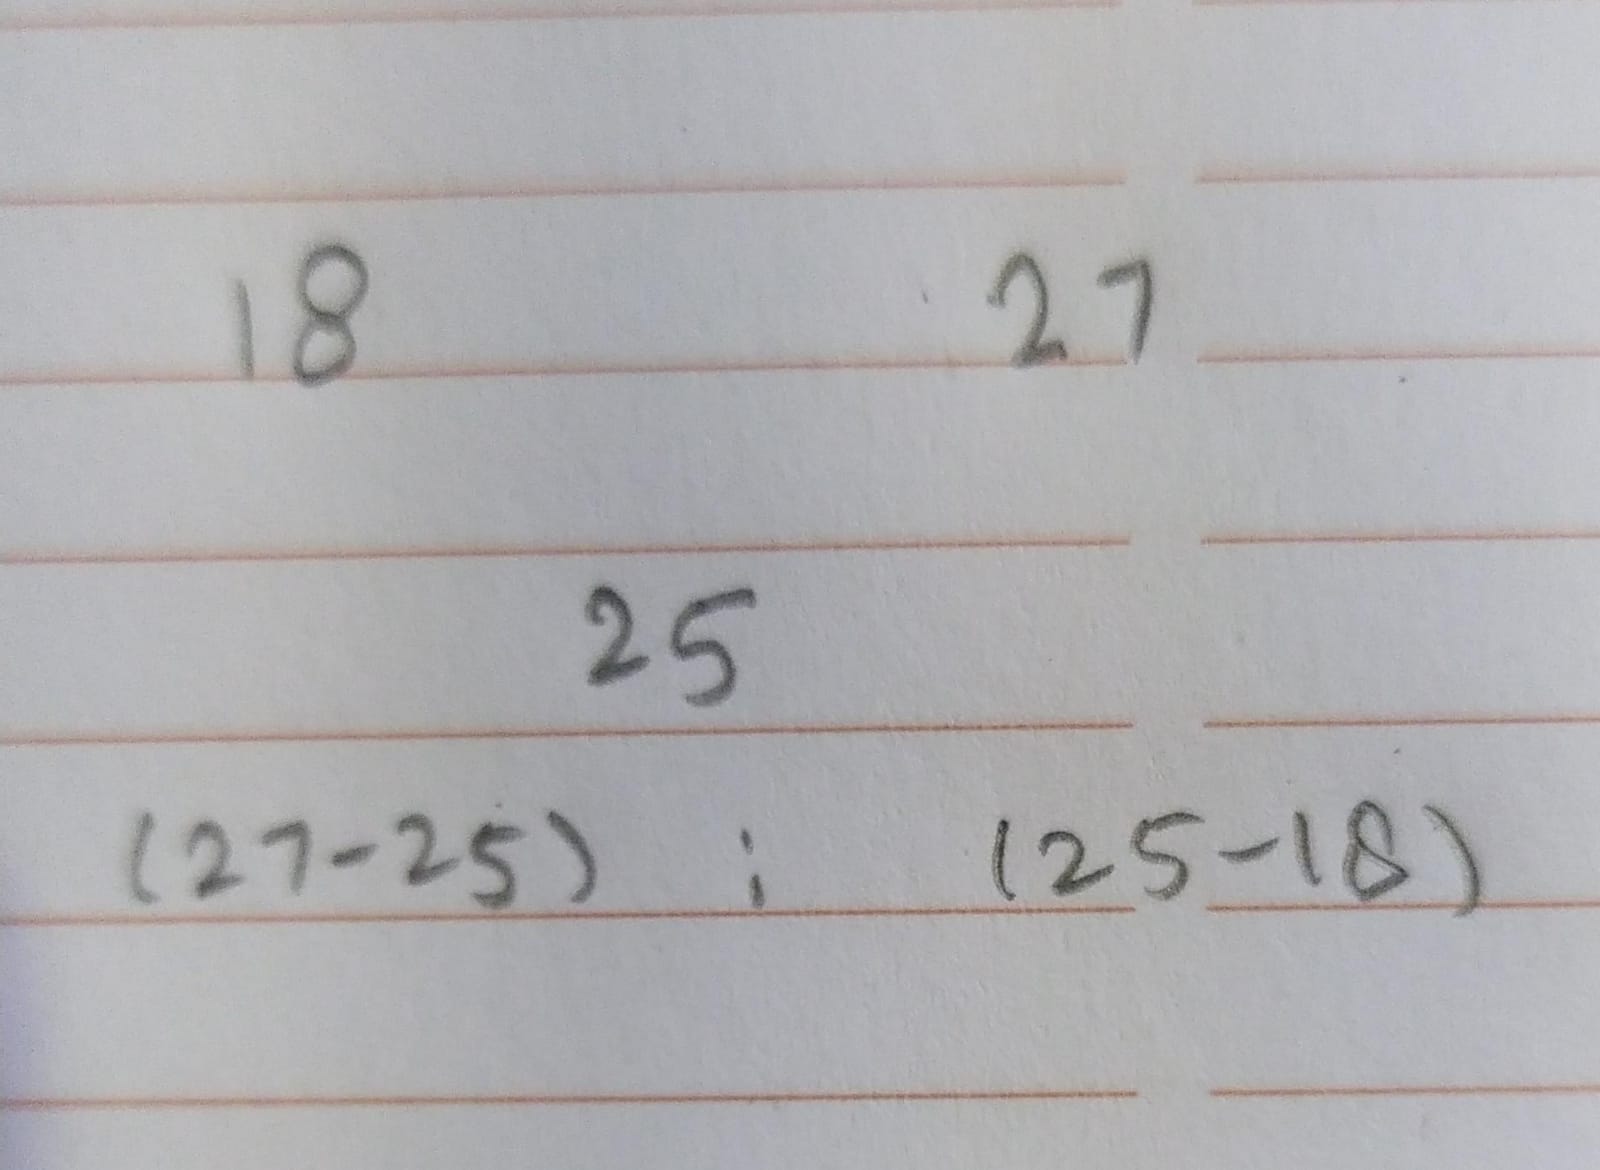 18 27
25
(27-25) : (25-18)